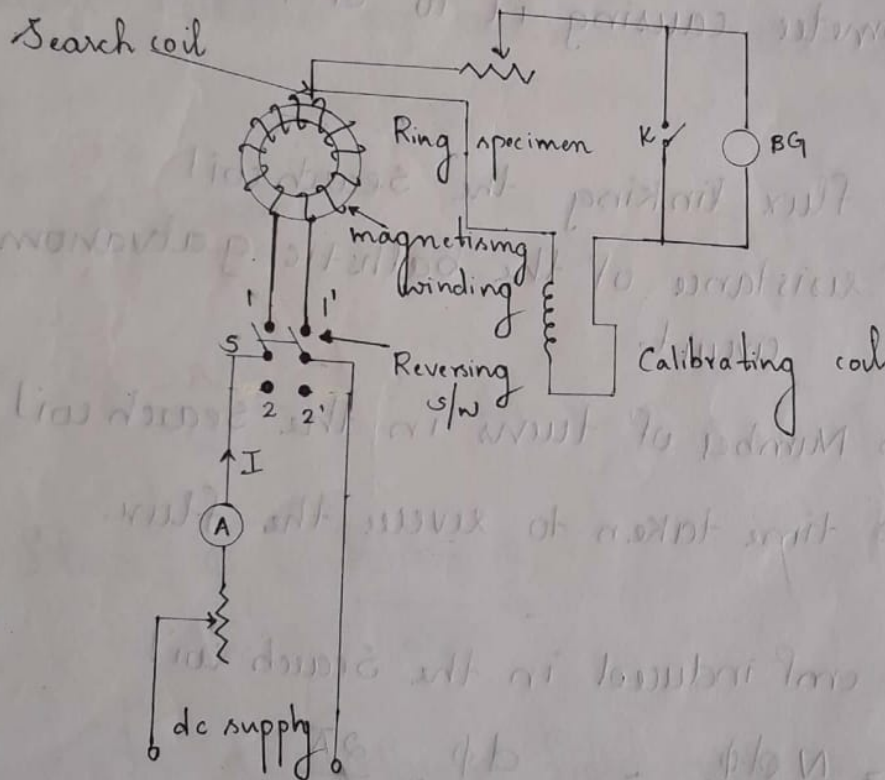 Search coil
Ring specimen
K
BG
magnetising
winding
1 1'
S
Reversing
s/w
2 2'
Calibrating coil
I
A
dc supply